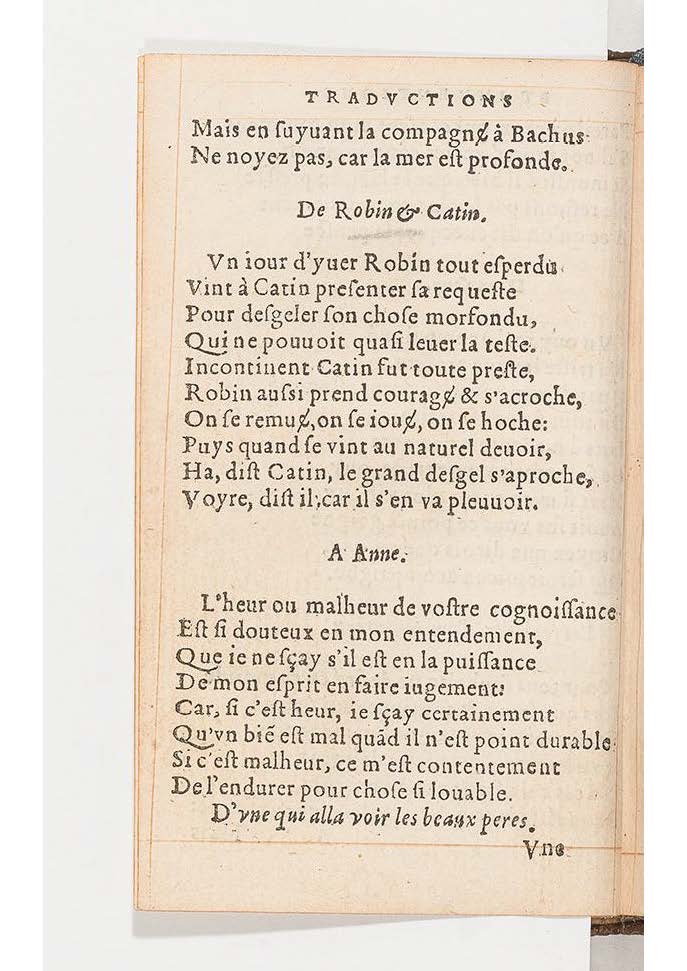 TRADVCTIONS
Mais en ſuyuant la compagnɇ à Bachus
Ne noyez pas, car la mer eſt profonde.
De Robin & Catin.
Vn iour d'yuer Robin tout eſperdu
Vint à Catin preſenter ſa requeſte
Pour deſgeler ſon choſe morfondu,
Qui ne pouuoit quaſi leuer la teſte.
Incontinent Catin fut toute preſte,
Robin auſſi prend couragɇ & s'acroche,
On ſe remuɇ, on ſe iouɇ, on ſe hoche:
Puys quand ſe vint au naturel deuoir,
Ha, diſt Catin, le grand deſgel s'aproche,
Voyre, diſt il, car il s'en va pleuuoir.
A Anne.
L'heur ou malheur de voſtre cognoiſſance
Eſt ſi douteux en mon entendement,
Que ie ne ſçay s'il eſt en la puiſſance
De mon eſprit en faire iugement:
Car, ſi c'eſt heur, ie ſçay certainement
Qu'vn biē eſt mal quād il n'eſt point durable:
Si c'eſt malheur, ce m'eſt contentement
De l'endurer pour choſe ſi louable.
D'vne qui alla voir les beaux peres.
Vne